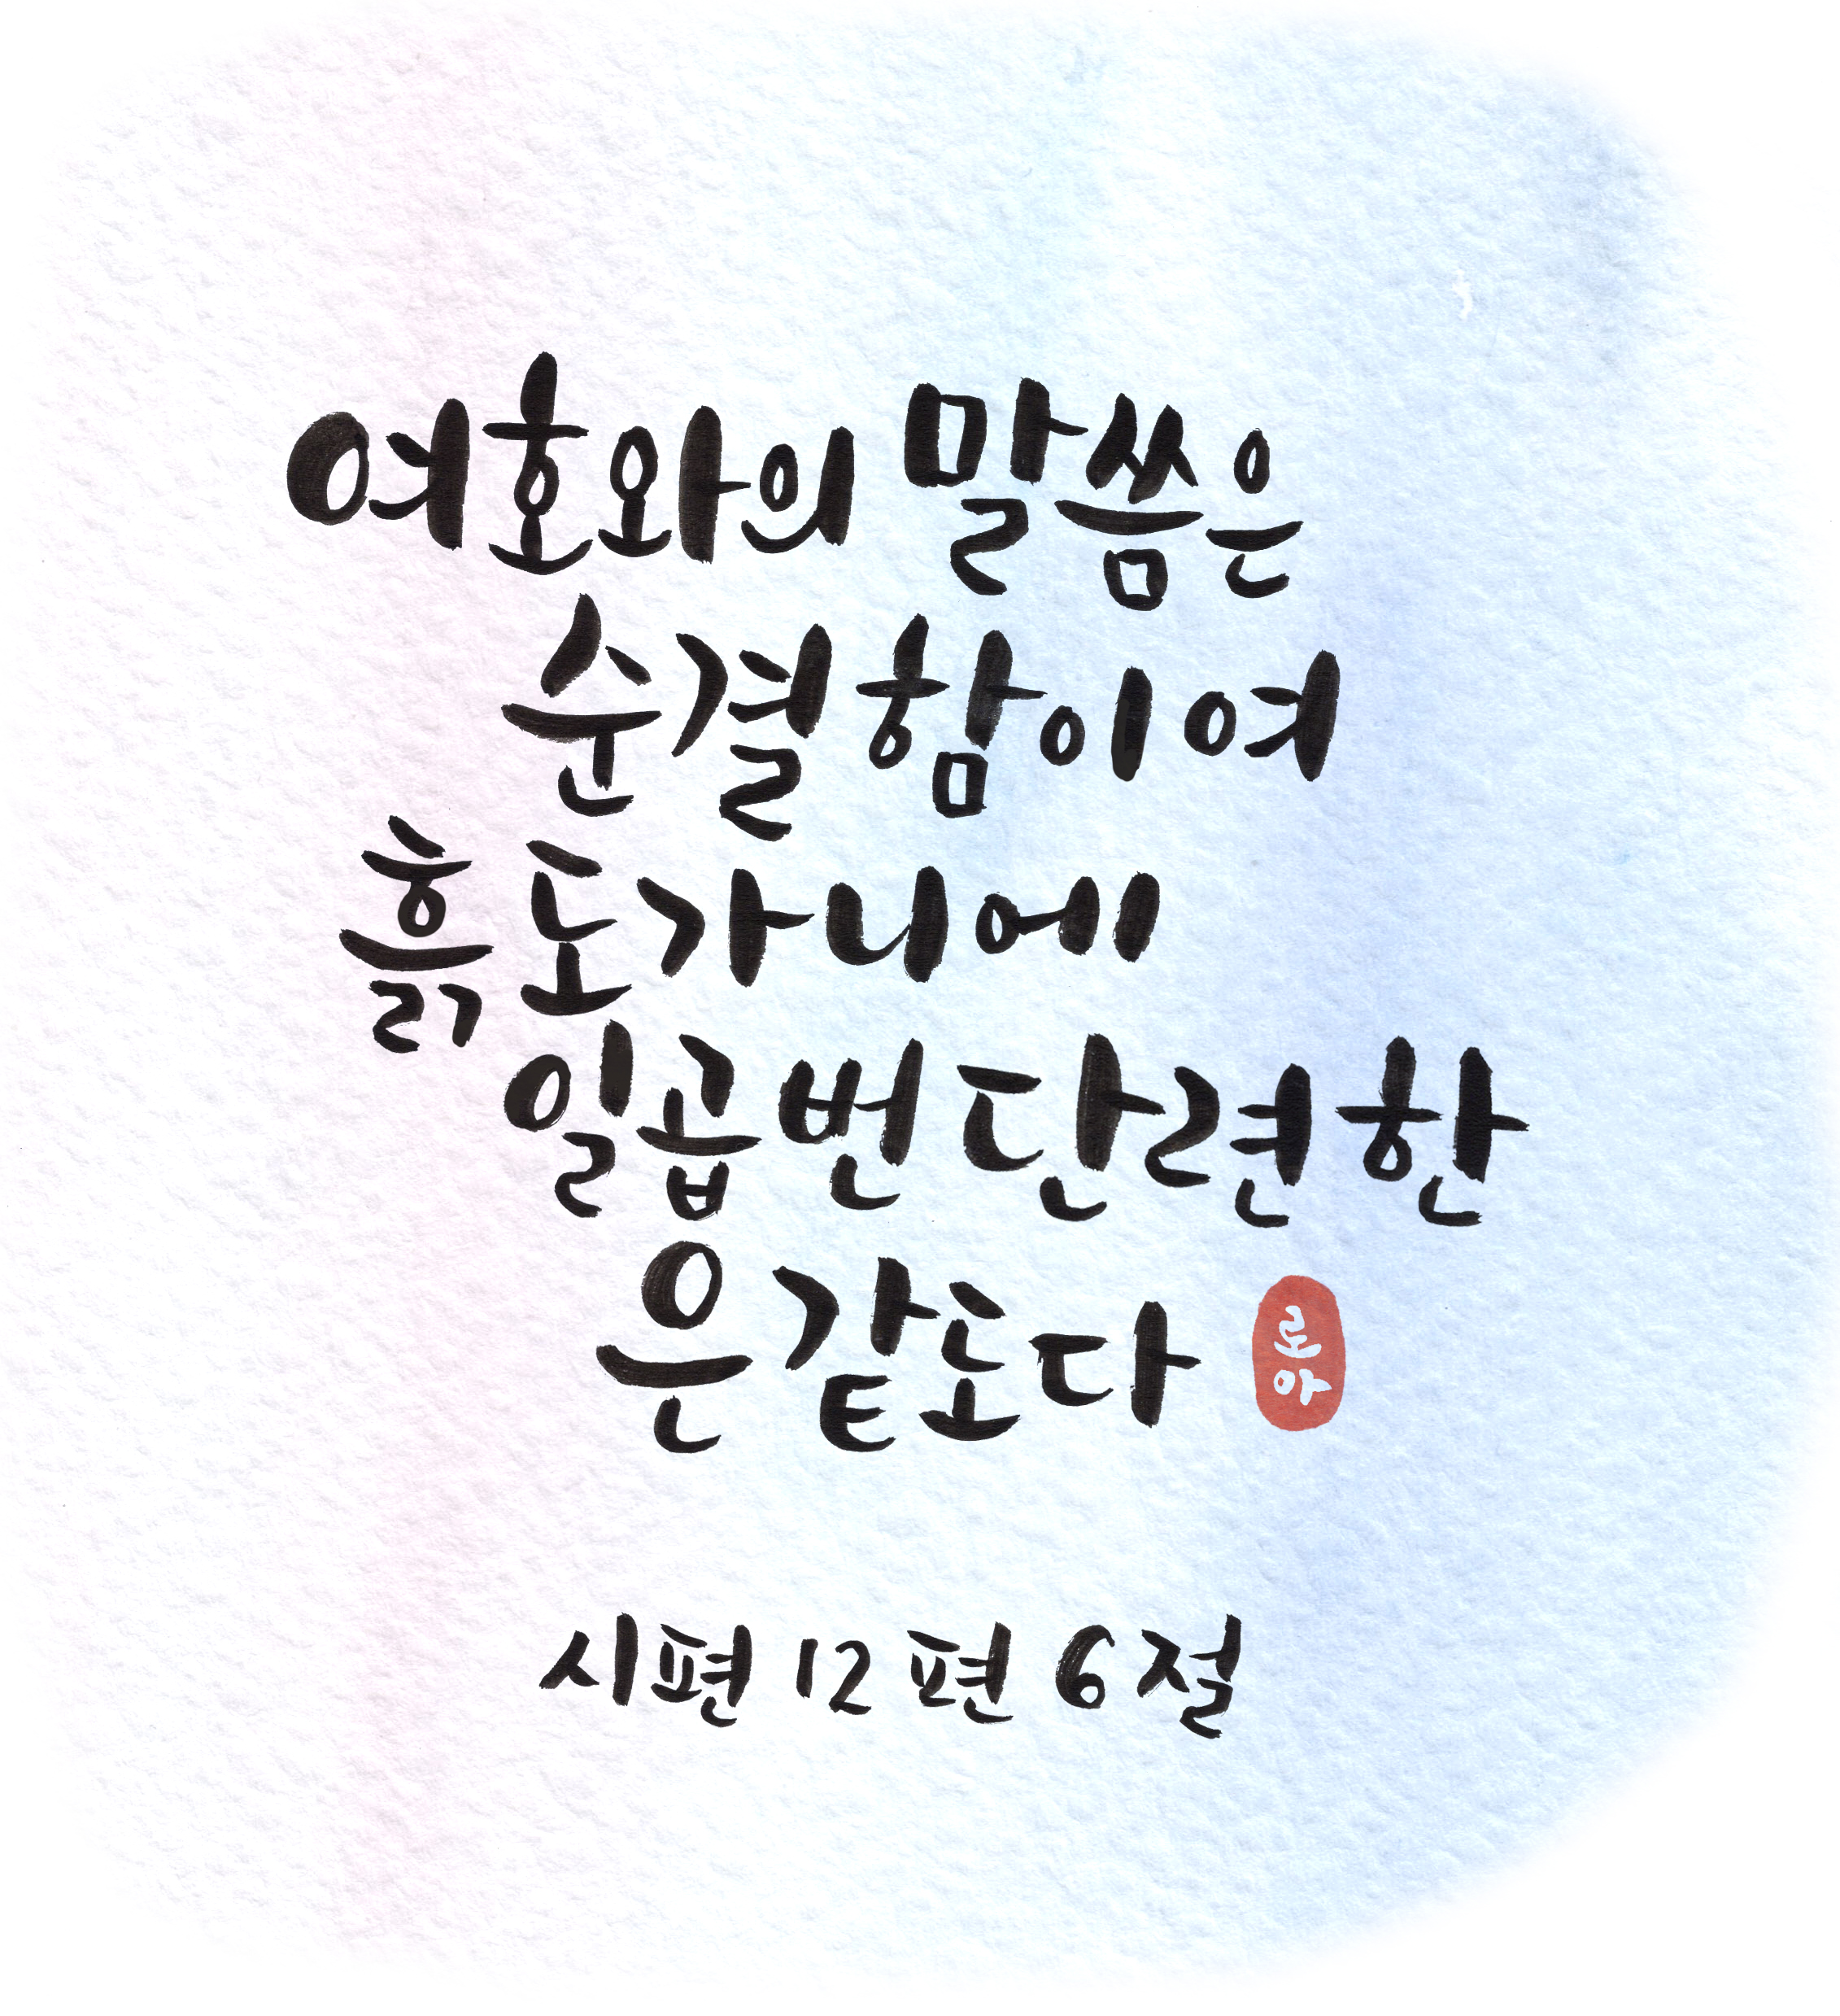 여호와의 말씀은
순결함이여
흙도가니에
일곱번단련한
은같도다
로아
시편 12편 6절